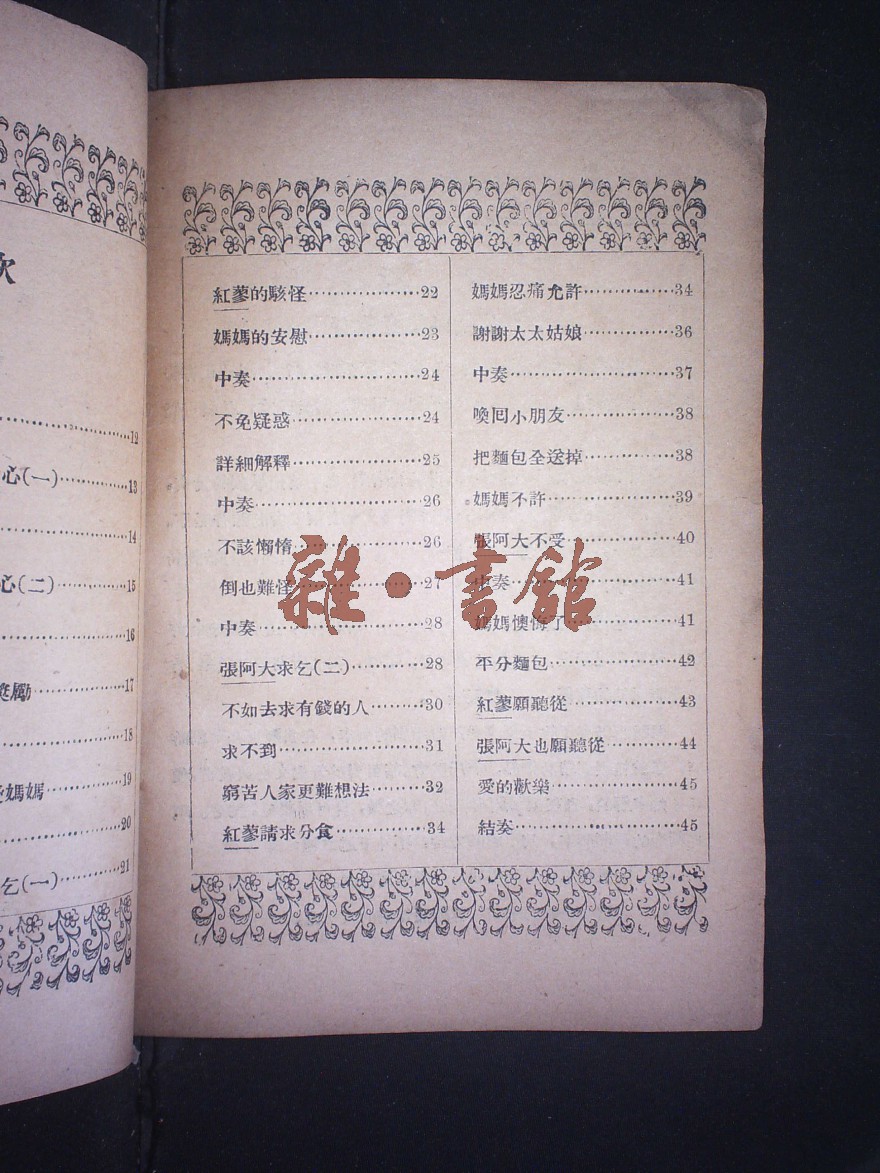 次
12
心(一)⋯⋯13
14
心(二)⋯⋯15
16
獎勵⋯⋯17
18
媽媽⋯⋯19
20
乞(一)⋯⋯21
紅蓼的駭怪⋯⋯22
媽媽的安慰⋯⋯23
中奏⋯⋯24
不免疑惑⋯⋯24
詳細解釋⋯⋯25
中奏⋯⋯26
不該懶惰⋯⋯26
倒也難怪⋯⋯27
中奏⋯⋯28
張阿大求乞(二)⋯⋯28
不如去求有錢的人⋯⋯30
求不到⋯⋯31
窮苦人家更難想法⋯⋯32
紅蓼請求分食⋯⋯34
媽媽忍痛允許⋯⋯34
謝謝太太姑娘⋯⋯36
中奏⋯⋯37
喚回小朋友⋯⋯38
把麵包全送掉⋯⋯38
媽媽不許⋯⋯39
張阿大不受⋯⋯40
中奏⋯⋯41
媽媽懊悔了⋯⋯41
平分麵包⋯⋯42
紅蓼願聽從⋯⋯43
張阿大也願聽從⋯⋯44
愛的歡樂⋯⋯45
結奏⋯⋯45
雜·書館